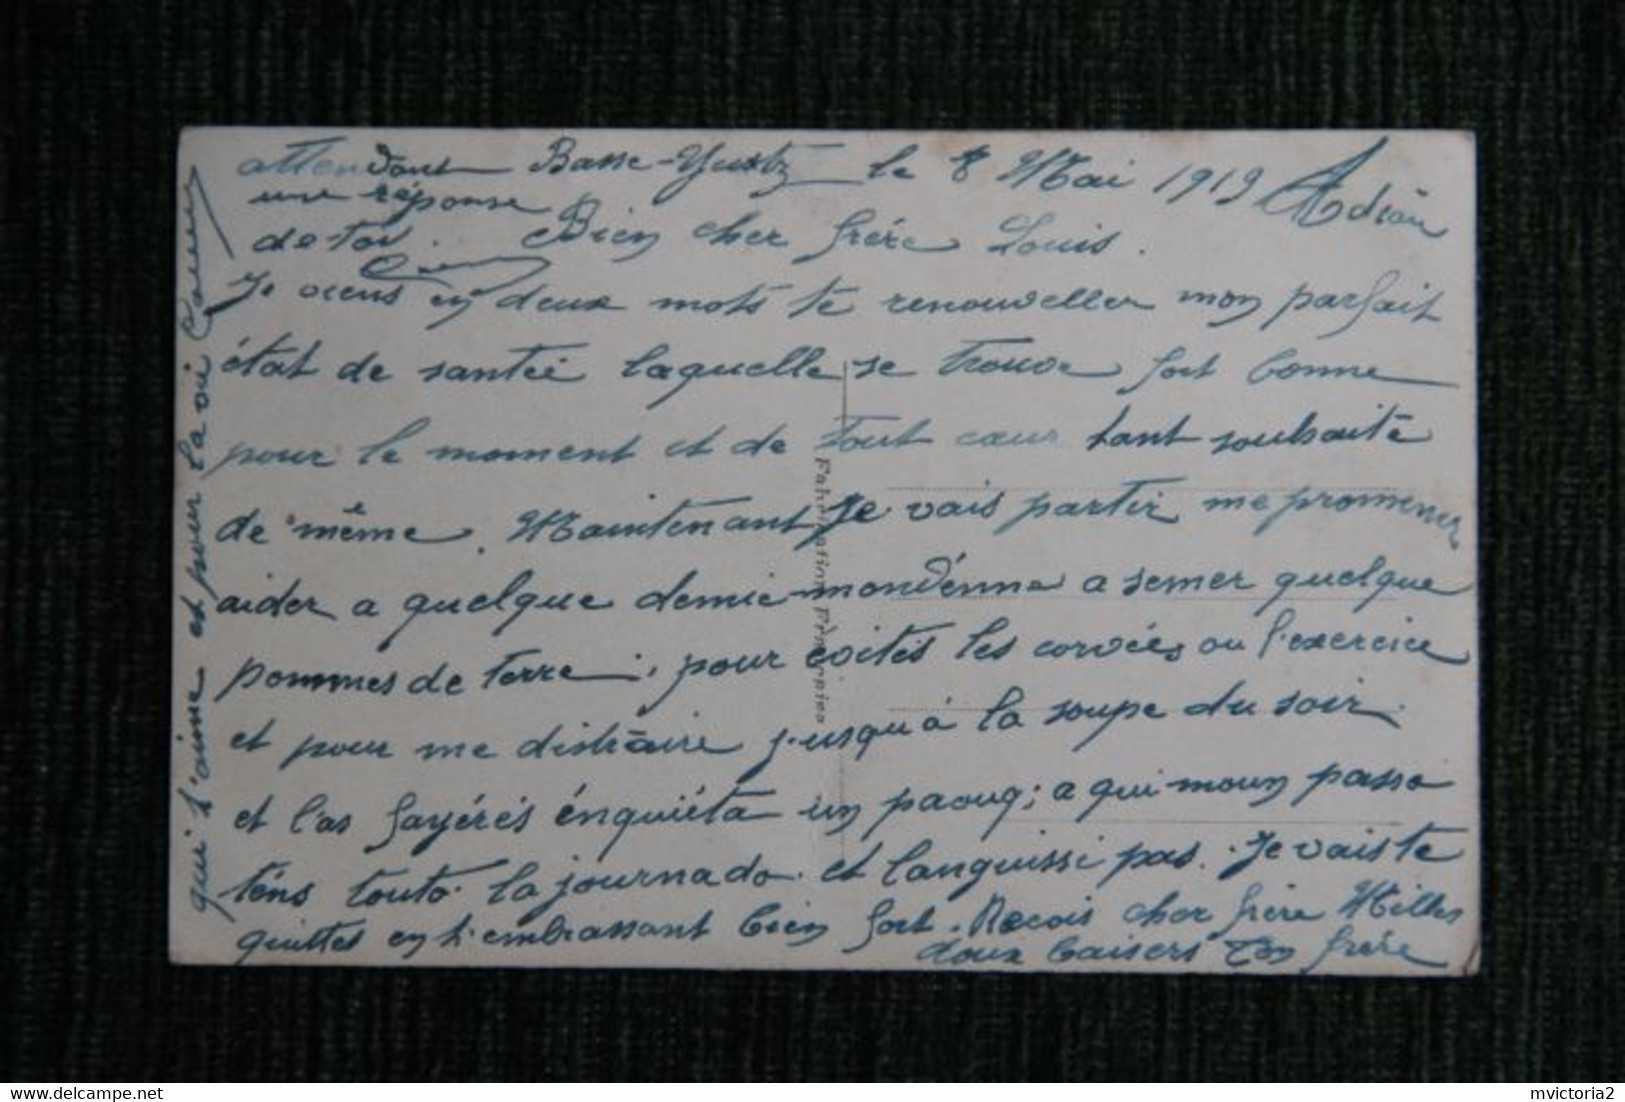 attendant Basse-Yustz le 8 Mai 1919 Adieu
une réponse
de toi. Bien cher frère Louis.
Je viens en deux mots te renouveller mon parfait
état de santée laquelle se trouve fort bonne
pour le moment et de tout cœur tant souhaite
de même. Maintenant je vais partir me promener
aider a quelque demie-mondénne a semer quelque
pommes de terre; pour évités les corvées ou l'exercice
et pour me distraire jusqu'à la soupe du soir.
et l'as fayérés énquiéta un paouq; a qui moun passo
téns touto la journado et languissi pas. Je vais te
quittes en t'embrassant bien fort. Reçois cher frère Milles
doux baisers ton frère
qui t'aime et pour la vie
Fabrication Française
www.delcampe.net
mvictoria2